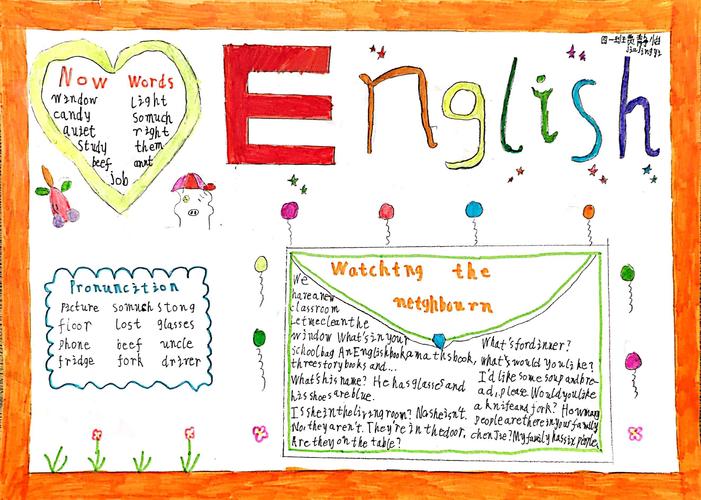 English
四一班黄静怡
Now Words
Window Light
candy Somuch
quiet right
study them
beef aunt
job
Pronuncition
Picture somuch stong
floor lost glasses
phone beef uncle
fridge fork driver
Watching the
neighbourn
We
havea new
classroom
Letmecleanthe
window What's in your
schoolbag AnEnglishbook, amathsbook,
threestorybooks and...
What's his name? He has glasses and
his shoes are blue.
Is she in the living room? No she isn't.
No, they aren't. They're in the door.
Are they on the table?
What's for dinner?
what's would you like?
I'd like some soup and bre-
ad, please. Would you like
a knife and fork? How many
people are there in your family
chen Jie? My family has six people.